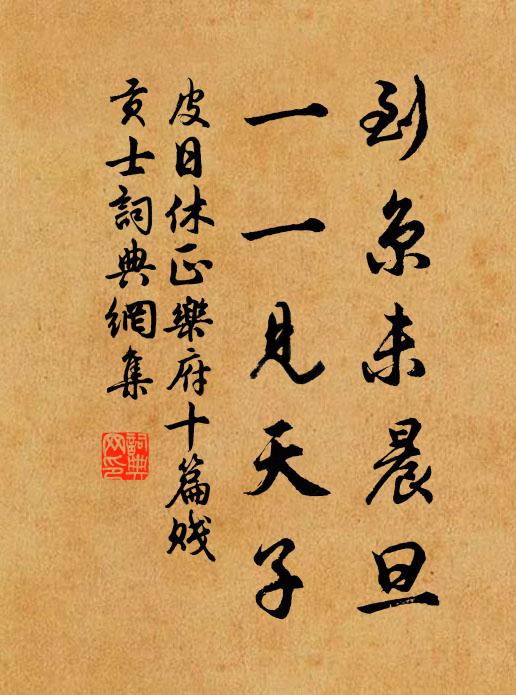 到京未晨旦
一一見天子
皮日休正樂府十篇賤
貢士詞典網集
詞典
网印